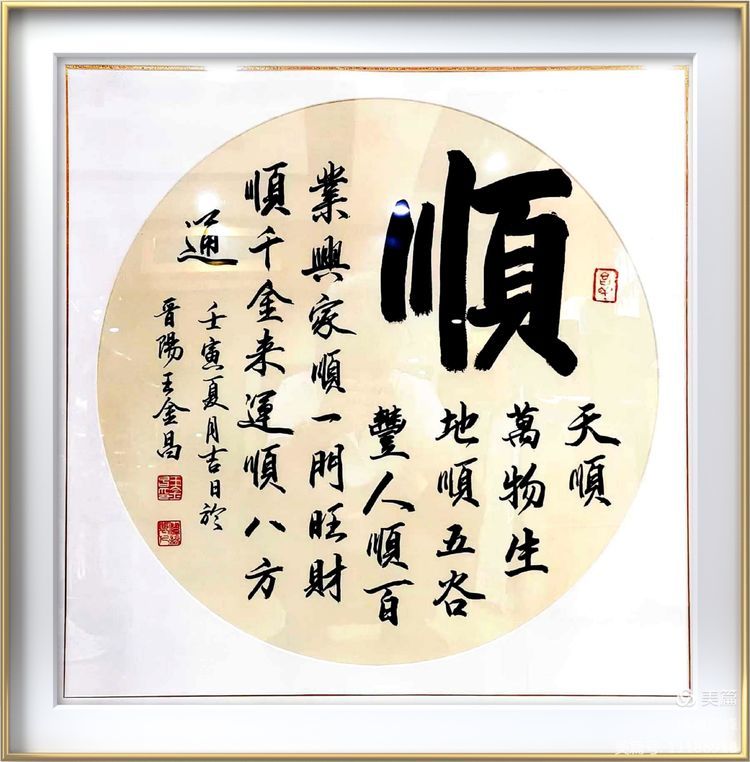 順
天順
萬物生
地順五谷
豐人順百
業興家順一門旺財
順千金来運順八方
通
壬寅夏月吉日於
晋陽王金昌
美篇